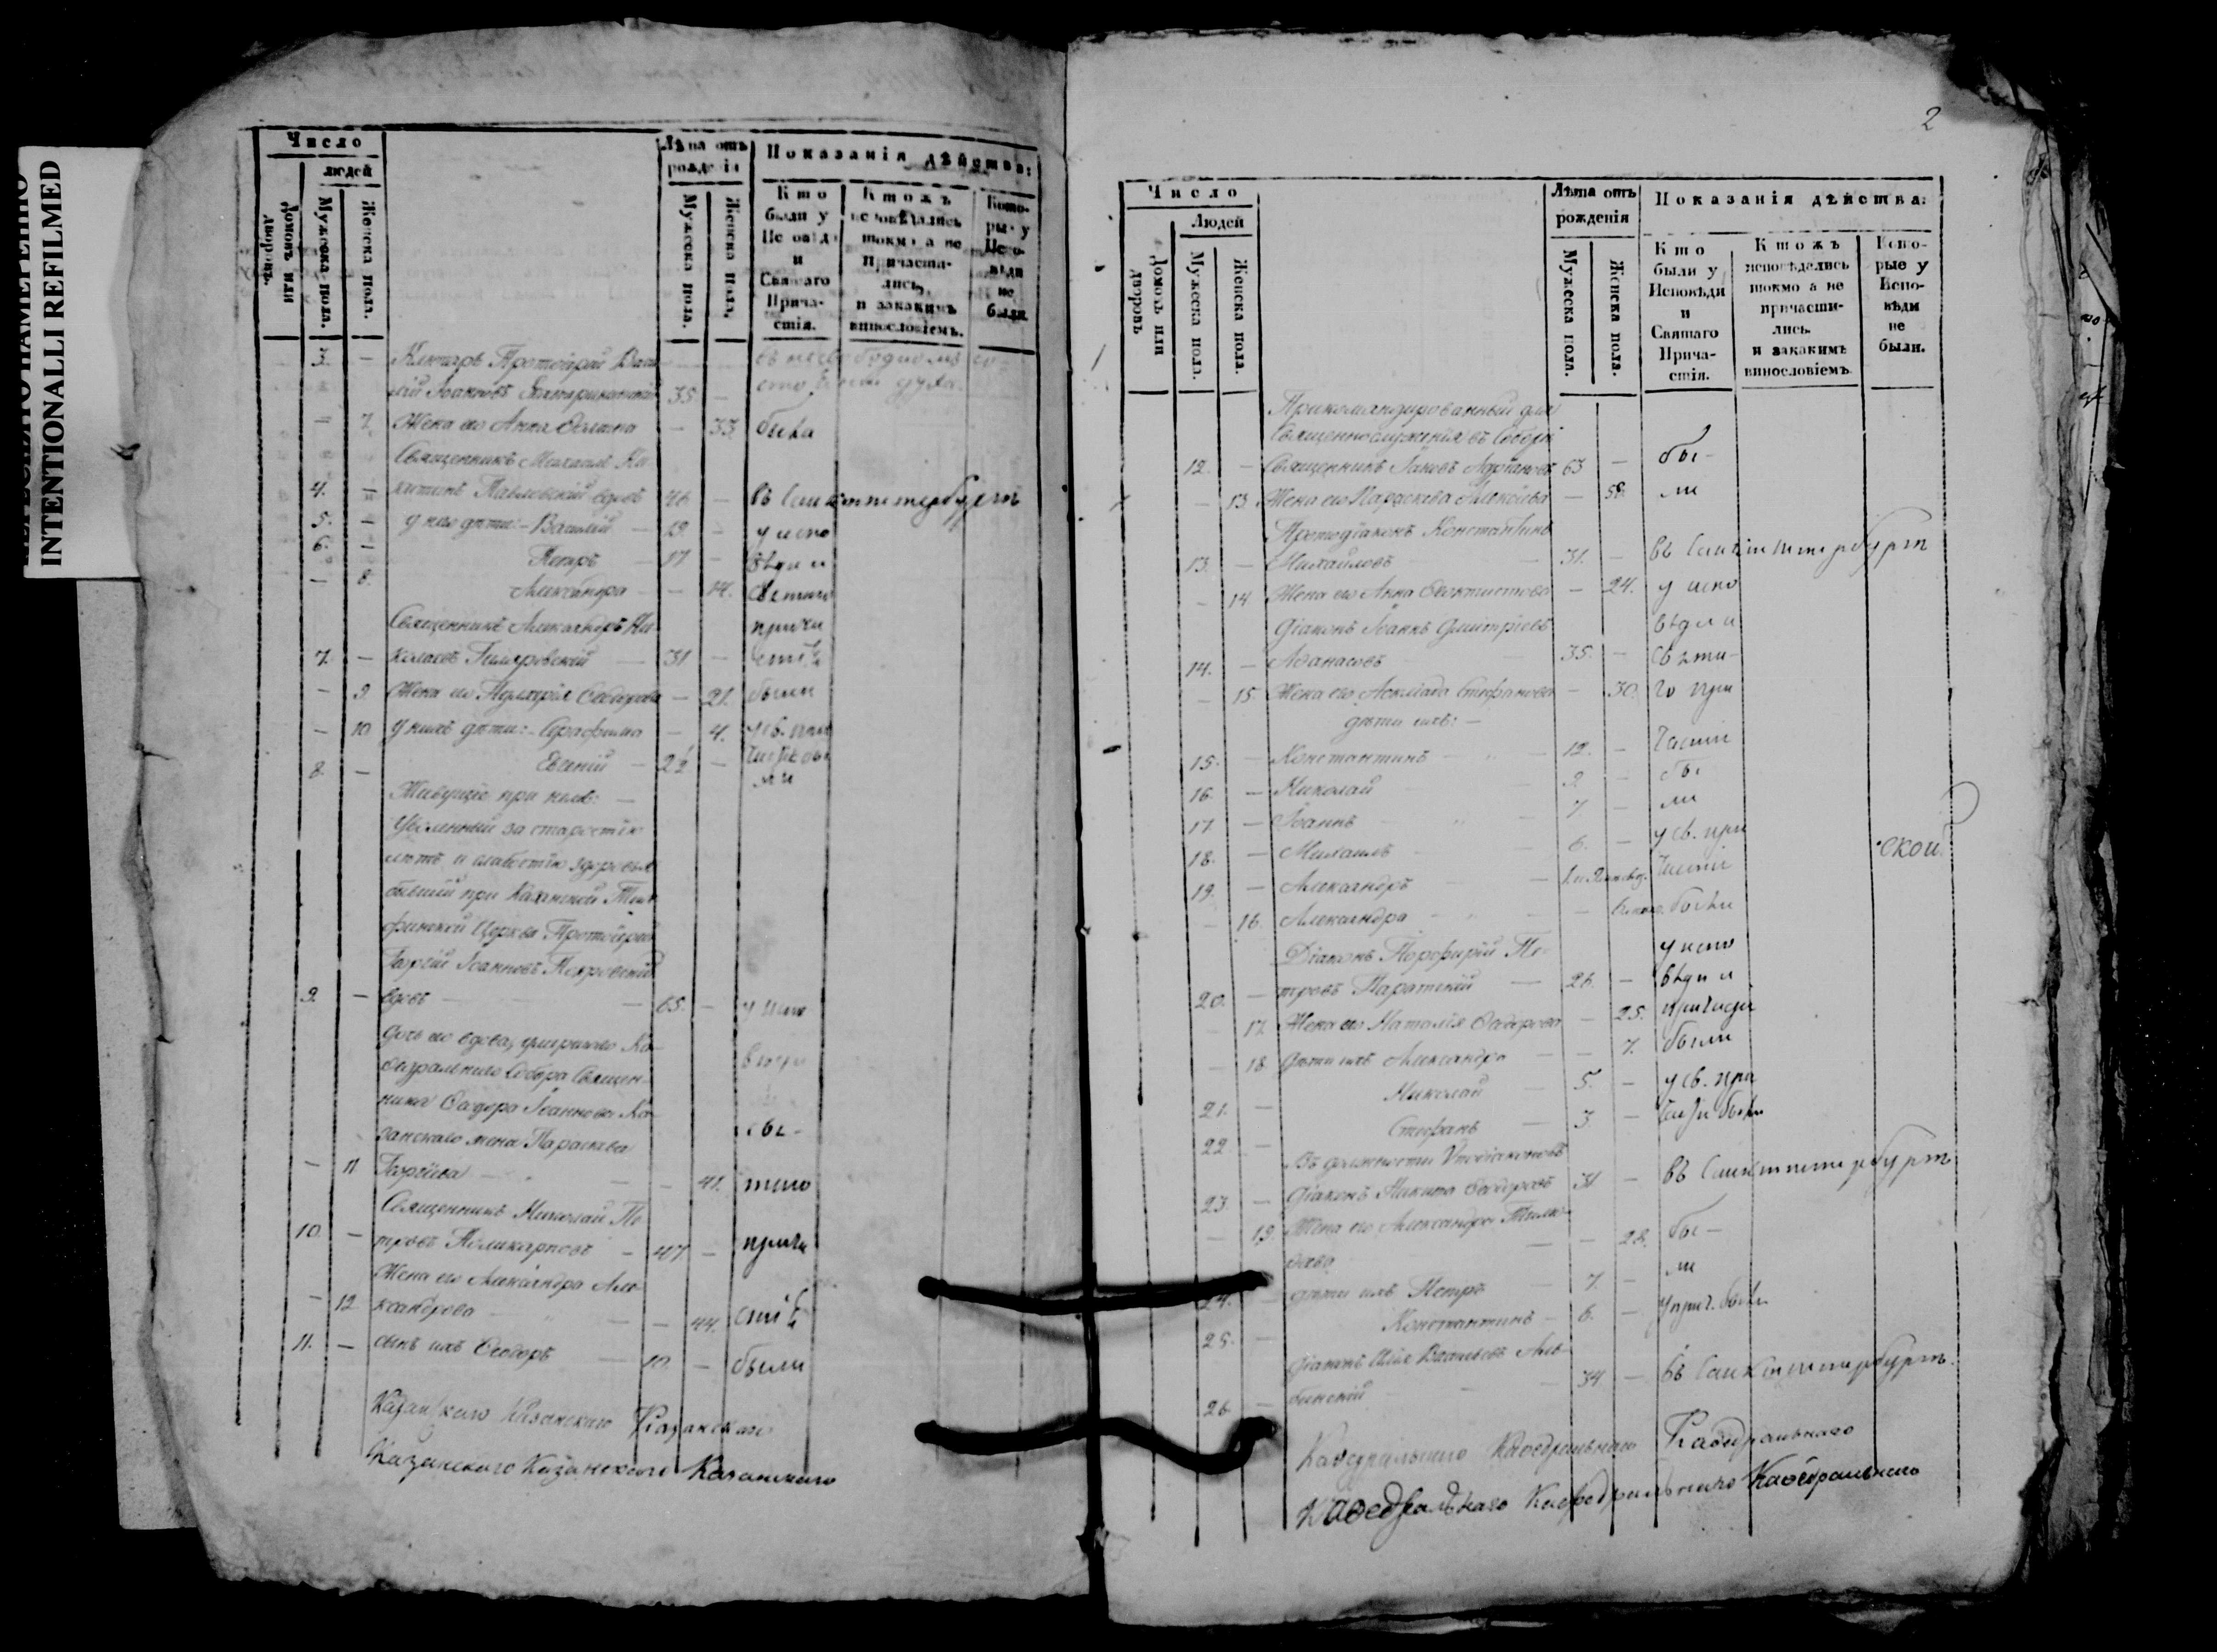 INTENTIONALLI REFILMED
Число
людей
Домовъ или дворовъ.
Мужеска пола.
Женска пола.
Лѣта отъ рожденія
Мужеска пола.
Женска пола.
Показанія дѣйства:
Кто были у Исповѣди и Святаго Причастія.
Ктожъ исповѣдались токмо а не причастились, и закакимъ винословіемъ.
Которые у Исповѣди не были.
3. — Ключарь Протоіерей Васи
лій Іоанновъ 35 —
— 7. Жена его Анна — 33. была
Священникъ Михаилъ
4. — Павловскій вдовъ 46 — въ Санктпетербургѣ
5. — у него дѣти: Василій — 19. — у испо
6. — Петръ — 17 — вѣди и
— 8. Александра — — 14. Святаго
Священникъ Александръ Ни
прича
7. — колаевъ 31 — стія
— 9 Жена его Ѳедорова — 21. были
— 10. У нихъ дѣти: Серафима — 4. у св. при
8. — Евгеній — 2½ —
Живущіе при немъ: —
Уволенный за старостію
лѣтъ и слабостію здоровья
бывшій при Казанской
Церкви Протоіерей
Іоанновъ Покровскій
9 — вдовъ — 65. — у испо
Дочь его вдова, умершаго Ка
ѳедральнаго Собора Священ
ника Ѳедора Іоаннова Ка
занскаго жена Параскева
— 11 — — 41.
Священникъ Николай Пе
10. — тровъ Поликарповъ — 47. — прича
Жена его Александра Але
— 12 ксандрова — — 44. стія
11. — сынъ ихъ Ѳеодоръ — 10. — были
Казанскаго Казанскаго Казанскаго
Казанскаго Казанскаго Казанскаго
2
Число
Людей
Домовъ или дворовъ
Мужеска пола.
Женска пола.
Лѣта отъ рожденія
Мужеска пола.
Женска пола.
Показанія дѣйства:
Кто были у Исповѣди и Святаго Причастія.
Ктожъ исповѣдались токмо а не причастились. и закакимъ винословіемъ.
Которые у Исповѣди не были.
Прикомандированный для
Священнослуженія въ Соборѣ
12. — Священникъ Іаковъ 63 — бы-
— 13. Жена его Параскева Алексіева — 58. ли
Протодіаконъ Константинъ
13. — Михайловъ 31. — въ Санктпетербургѣ
— 14. Жена его Анна Ѳеоктистова — 24. у испо
Діаконъ Іоаннъ Дмитріевъ вѣди и
14. — Аѳанасовъ 35. — Святи-
— 15. Жена его Стефанова — 30. го при
дѣти ихъ: —
15. — Константинъ — 12. — частія
16. — Николай 9 — бы
17. — Іоаннъ — 7 — ли
18. — Михаилъ — 6. — у св. при
19. — Александръ —
— 16. Александра — — были
Діаконъ Порфирій Пе- у испо
20. — тровъ Паратскій — 26. — вѣди и
— 17. Жена его Наталія Ѳедорова — 25.
— 18. Дѣти ихъ Александра — — 7. были
21. — Николай — 5. — у св. при
22. — Стефанъ — 3 —
Въ должности Иподіаконовъ
23. — Діаконъ Никита Ѳедоровъ 31 — въ Санктпетербургѣ
— 19. Жена его Александра — 28. бы-
24. — дѣти ихъ Петръ — 7. — ли
25. — Константинъ — 6. —
Діаконъ Илія Васильевъ
26. — 34 — въ Санктпетербургѣ.
ской
Каѳедральнаго Каѳедральнаго Каѳедральнаго
Каѳедральнаго Каѳедральнаго Каѳедральнаго